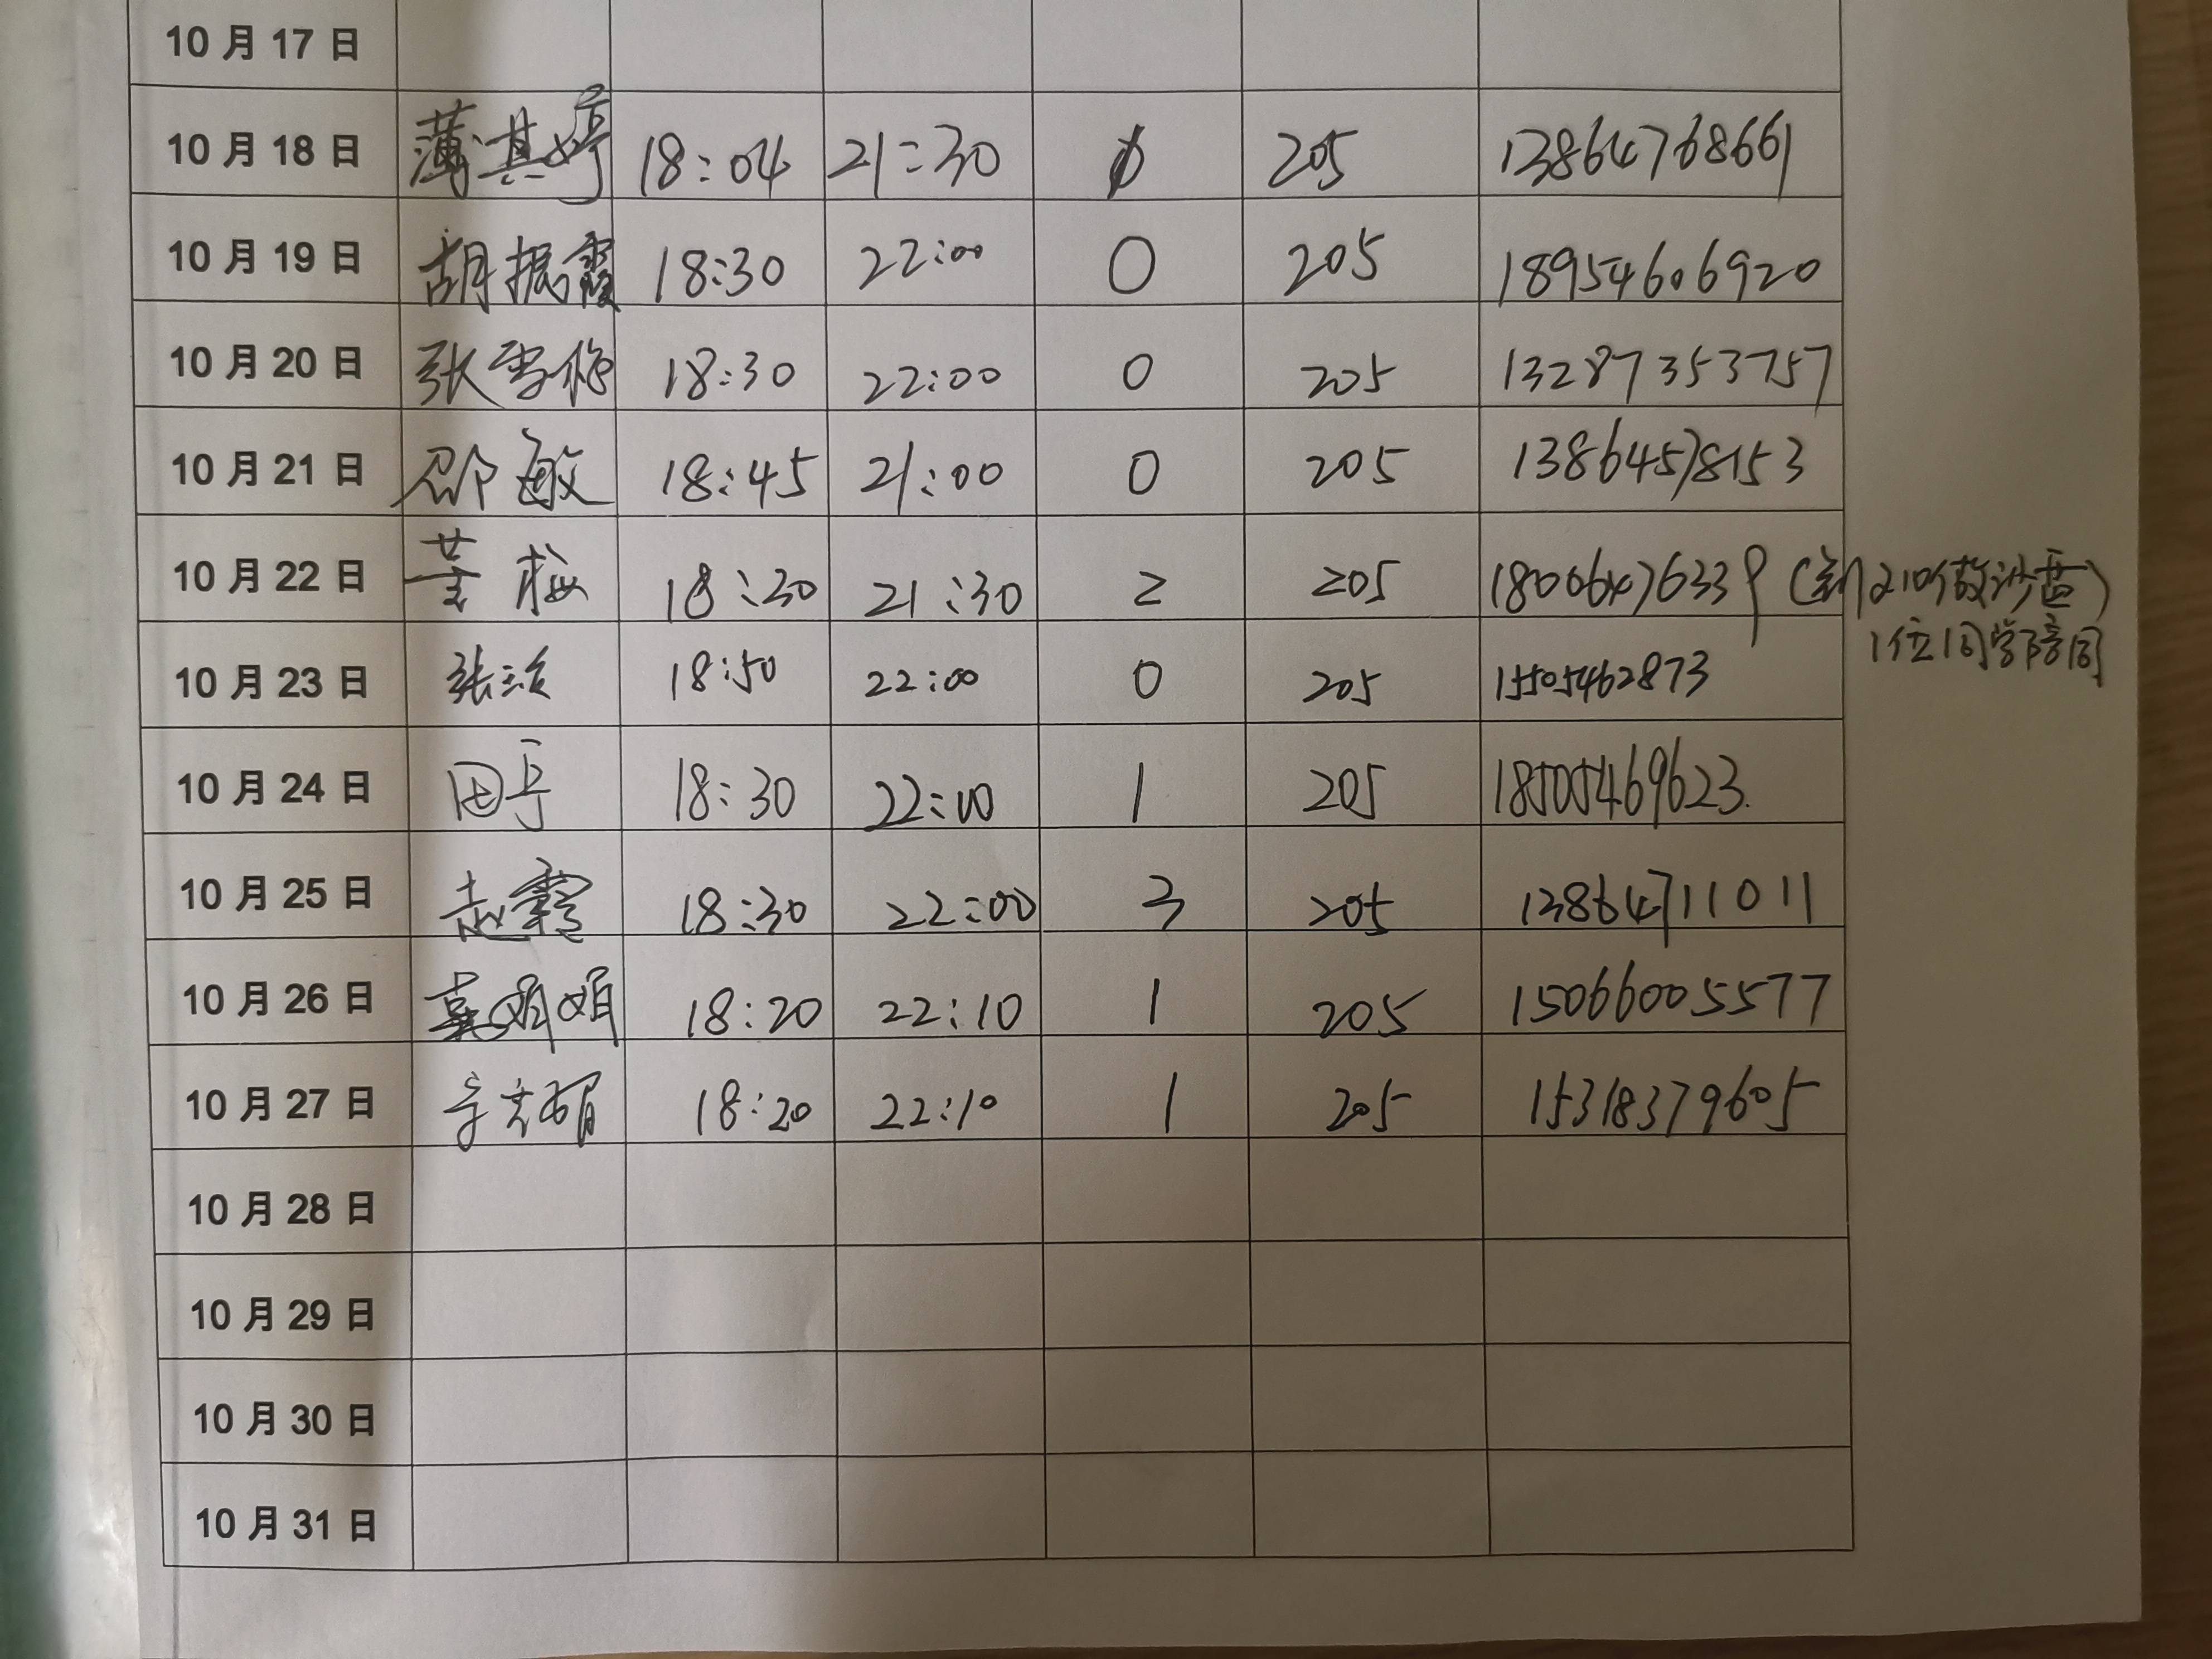 10月17日
10月18日 薄其婷 18:04 21:30 0 205 13864768661
10月19日 胡振霞 18:30 22:00 0 205 18954606920
10月20日 张雪梅 18:30 22:00 0 205 13287353757
10月21日 邵敏 18:45 21:00 0 205 13864578153
10月22日 董梅 18:30 21:30 2 205 18006476339 (到210做沙盘)
1位同学陪同
10月23日 张 18:50 22:00 0 205 15505462873
10月24日 田宁 18:30 22:00 1 205 18505469623.
10月25日 赵霞 18:30 22:00 3 205 13864711011
10月26日 娟娟 18:20 22:10 1 205 15066005577
10月27日 18:20 22:10 1 205 15318379605
10月28日
10月29日
10月30日
10月31日